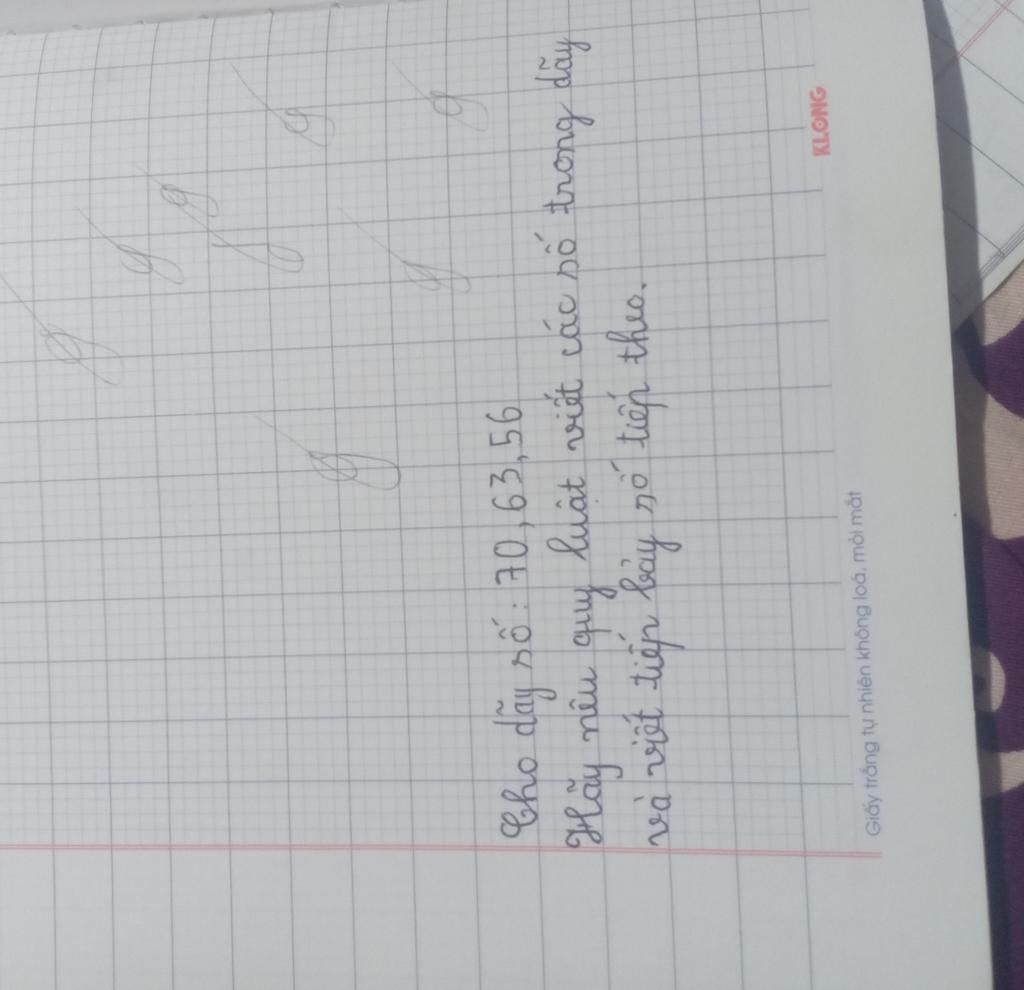 Cho dãy số: 70, 63, 56
Hãy nêu quy luật viết các số trong dãy
và viết tiếp bảy số tiếp theo.
Giấy trắng tự nhiên không loá, mỏi mắt
KLONG